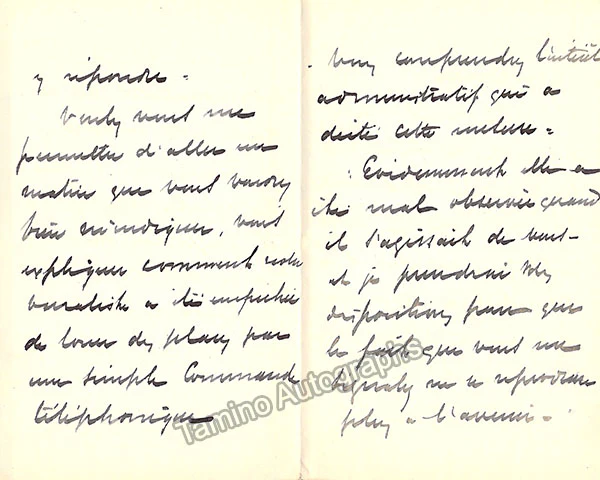 y répondre.
Voulez vous me
permettre d'aller un
matin que vous voudrez
bien m'indiquer, vous
expliquer comment notre
buraliste a été empêchée
de louer des places par
une simple Commande
téléphonique
Vous comprendrez l'intérêt
administratif qui a
dicté cette mesure =
Evidemment elle a
été mal observée quand
il s'agissait de vous -
et je prendrai mes
dispositions pour que
le fait que vous me
signalez ne se reproduise
plus à l'avenir.
Tamino Autographs